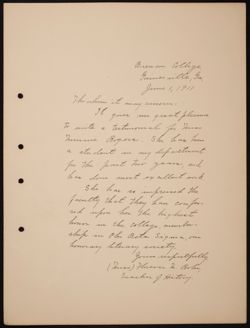 Brenau College
Gainesville, Ga.
June 1, 1911
To whom it may concern:
It gives me great pleasure
to write a testimonial for Miss
Minnie Rogers. She has been
a student in my department
for the past two years, and
has done most excellent work.
She has so impressed the
faculty that they have confer-
red upon her the highest
honor in the college member-
ship in the Beta Sigma, an
honorary literary society.
Yours respectfully
(Miss)
Teacher of History.